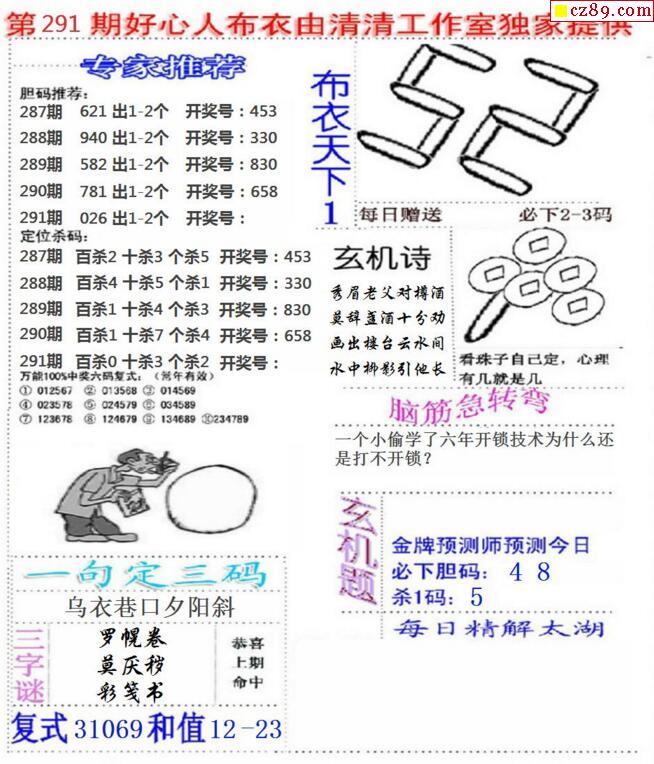 cz89.com
第291期好心人布衣由清清工作室独家提供
专家推荐
胆码推荐:
287期 621 出1-2个 开奖号:453
288期 940 出1-2个 开奖号:330
289期 582 出1-2个 开奖号:830
290期 781 出1-2个 开奖号:658
291期 026 出1-2个 开奖号:
定位杀码:
287期 百杀2 十杀3 个杀5 开奖号:453
288期 百杀4 十杀5 个杀1 开奖号:330
289期 百杀1 十杀4 个杀3 开奖号:830
290期 百杀1 十杀7 个杀4 开奖号:658
291期 百杀0 十杀3 个杀2 开奖号:
万能100%中奖六码复式:(常年有效)
① 012567 ② 013568 ③ 014569
④ 023578 ⑤ 024579 ⑥ 034589
⑦ 123678 ⑧ 124679 ⑨ 134689 ⑩234789
一句定三码
乌衣巷口夕阳斜
三字谜
罗幌卷
莫厌秽
彩笺书
恭喜
上期
命中
复式31069和值12-23
布衣天下1
52
每日赠送 必下2-3码
玄机诗
秀眉老父对樽酒
莫辞盏酒十分劝
画出楼台云水间
水中柳影引他长
看珠子自己定，心理
有几就是几
脑筋急转弯
一个小偷学了六年开锁技术为什么还
是打不开锁？
玄机题
金牌预测师预测今日
必下胆码: 4 8
杀1码: 5
每日精解太湖